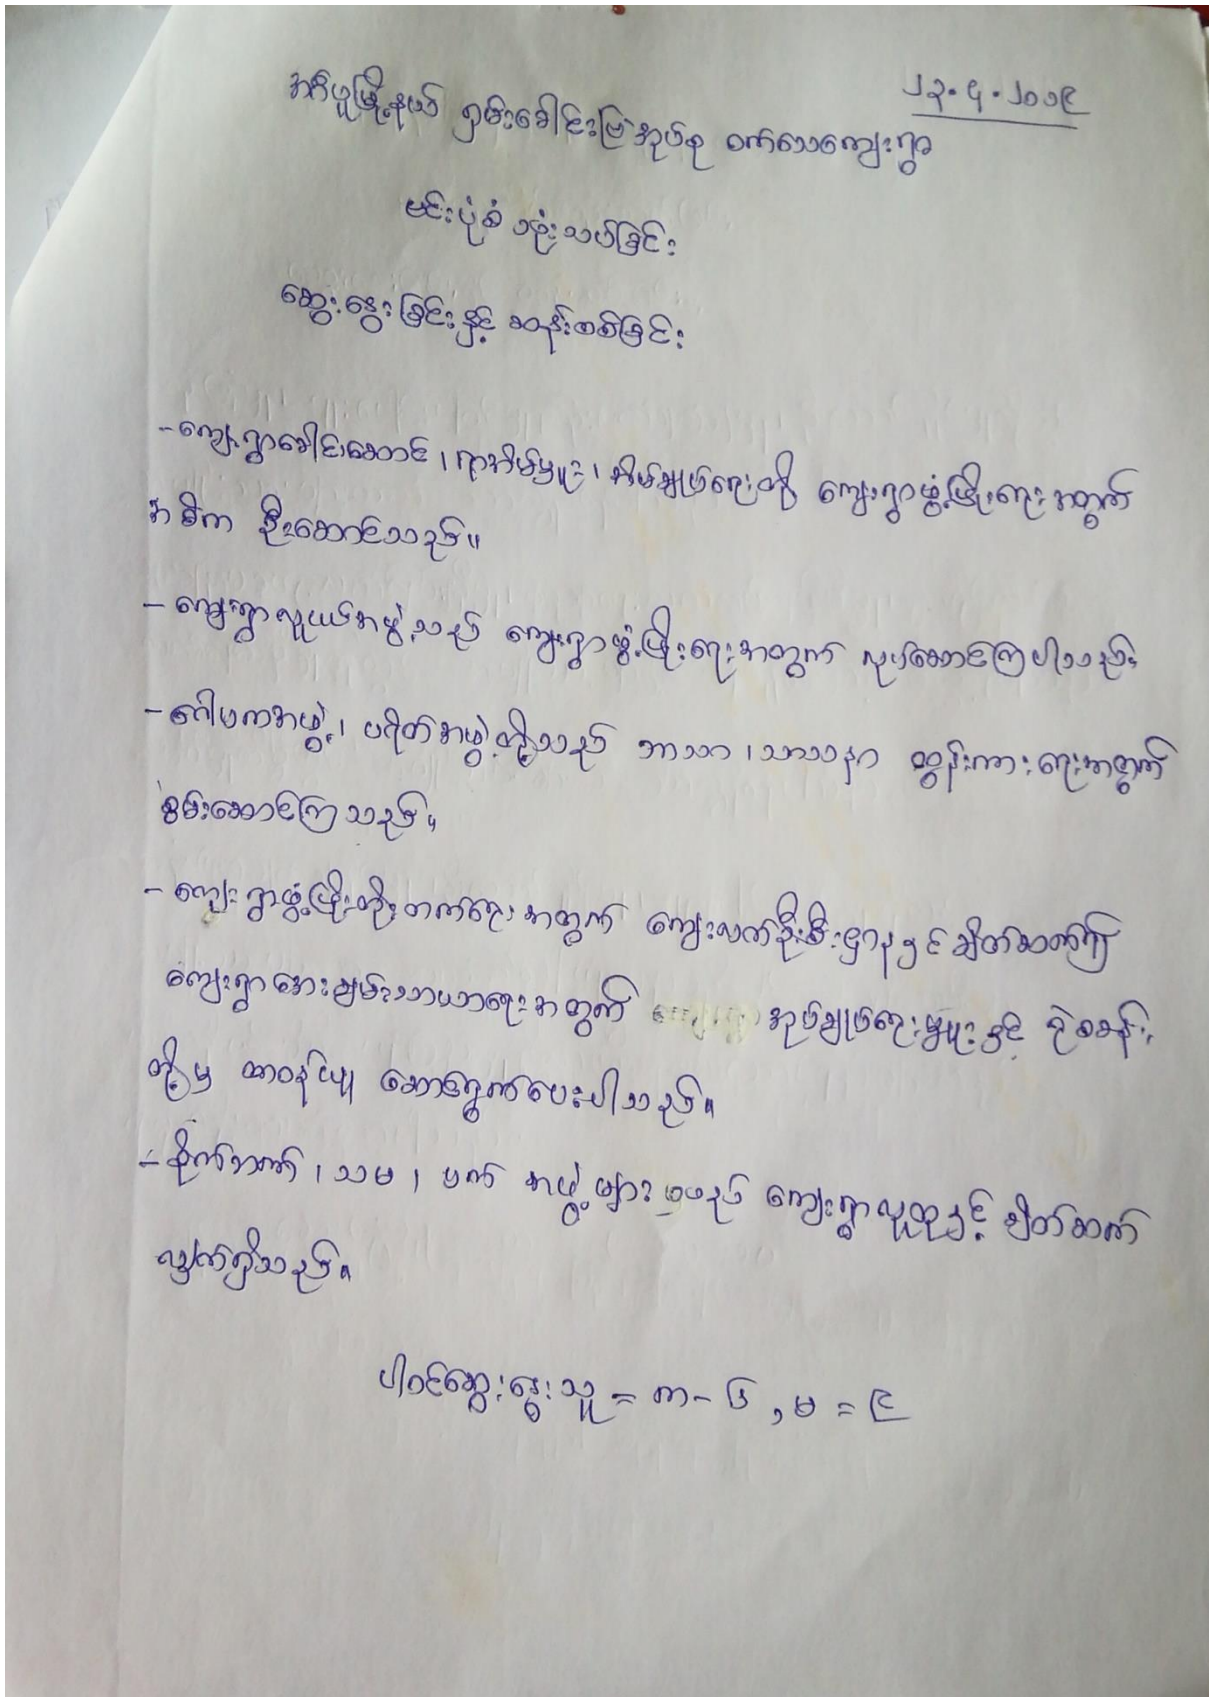 ၂၃.၄.၂၀၁၉
အင်္ဂပူမြို့နယ် ရှမ်းခေါင်းဗြဲအုပ်စု ဝက်သေကျေးရွာ
ပုံစံ သုံးသပ်ခြင်း
ဆွေးနွေးခြင်းနှင့် ဆန်းစစ်ခြင်း
- ကျေးရွာခေါင်းဆောင်၊ ရာအိမ်မှူး၊ အိမ်ချုပ်ရေးတို့ ကျေးရွာဖွံ့ဖြိုးရေးအတွက်
အဓိက ဦးဆောင်သည်။
- ကျေးရွာလူငယ်အဖွဲ့သည် ကျေးရွာဖွံ့ဖြိုးရေးအတွက် လုပ်ဆောင်ကြပါသည်။
- ဂေါပကအဖွဲ့၊ ပရိတ်အဖွဲ့တို့သည် ဘာသာ၊ သာသနာ ထွန်းကားရေးအတွက်
စွမ်းဆောင်ကြသည်။
- ကျေးရွာဖွံ့ဖြိုးတိုးတက်ရေးအတွက် ကျေးလက်ဦးစီးဌာနနှင့် ချိတ်ဆက်၍
ကျေးရွာအေးချမ်းသာယာရေးအတွက် အုပ်ချုပ်ရေးမှူးနှင့် ရဲစခန်း
တို့မှ တာဝန်ယူ ဆောင်ရွက်ပေးပါသည်။
- စိုက်ဘဏ်၊ သမ၊ ပက် အဖွဲ့များမှလည် ကျေးရွာလူထုနှင့် ချိတ်ဆက်
လျှက်ရှိသည်။
ပါဝင်ဆွေးနွေးသူ = ကာ - ၆ , မ = ၉